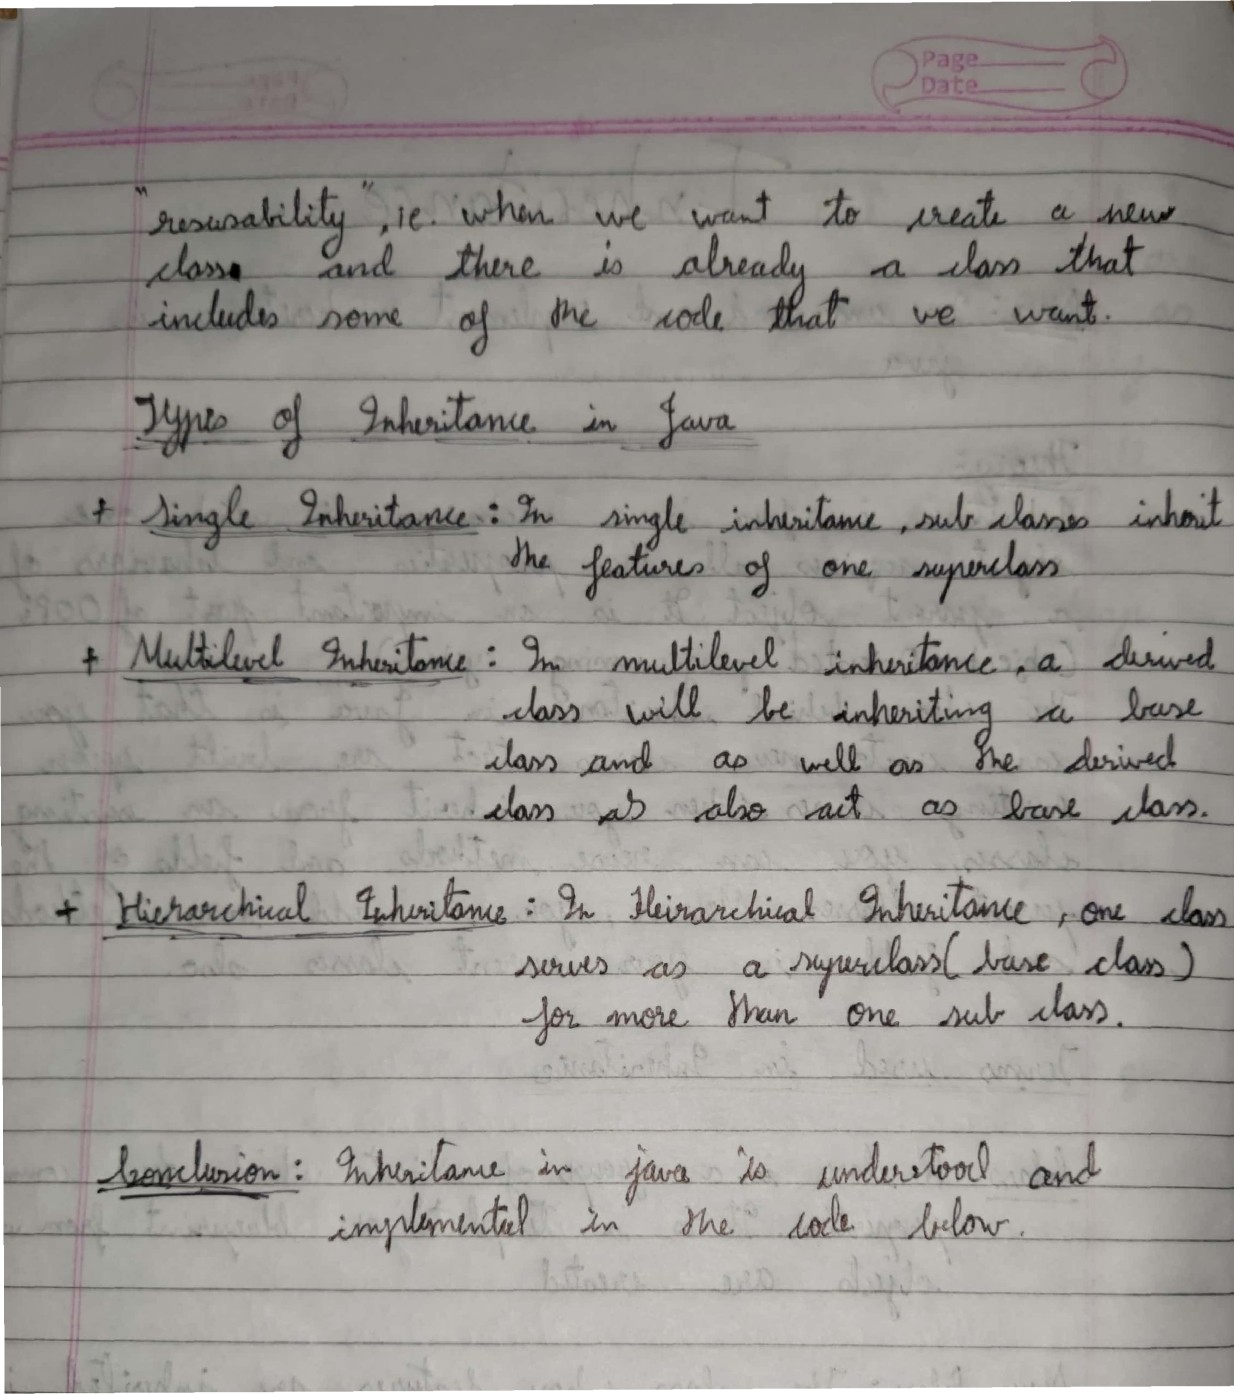 Page
Date
"resusability", ie. when we want to create a new
class and there is already a class that
includes some of the code that we want.
Types of Inheritance in Java
+ Single Inheritance : In single inheritance, sub classes inherit
the features of one superclass
+ Multilevel Inheritance : In multilevel inheritance, a derived
class will be inheriting a base
class and as well as the derived
class as also act as base class.
+ Hierarchical Inheritance : In Heirarchical Inheritance, one class
serves as a superclass( base class)
for more than one sub class.
Conclusion : Inheritance in java is understood and
implemented in the code below.